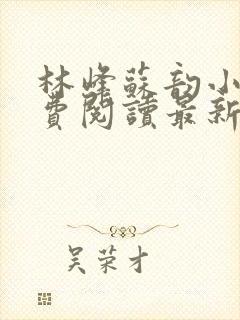 林峰蘇韵小
費閱讀最新
吴荣才